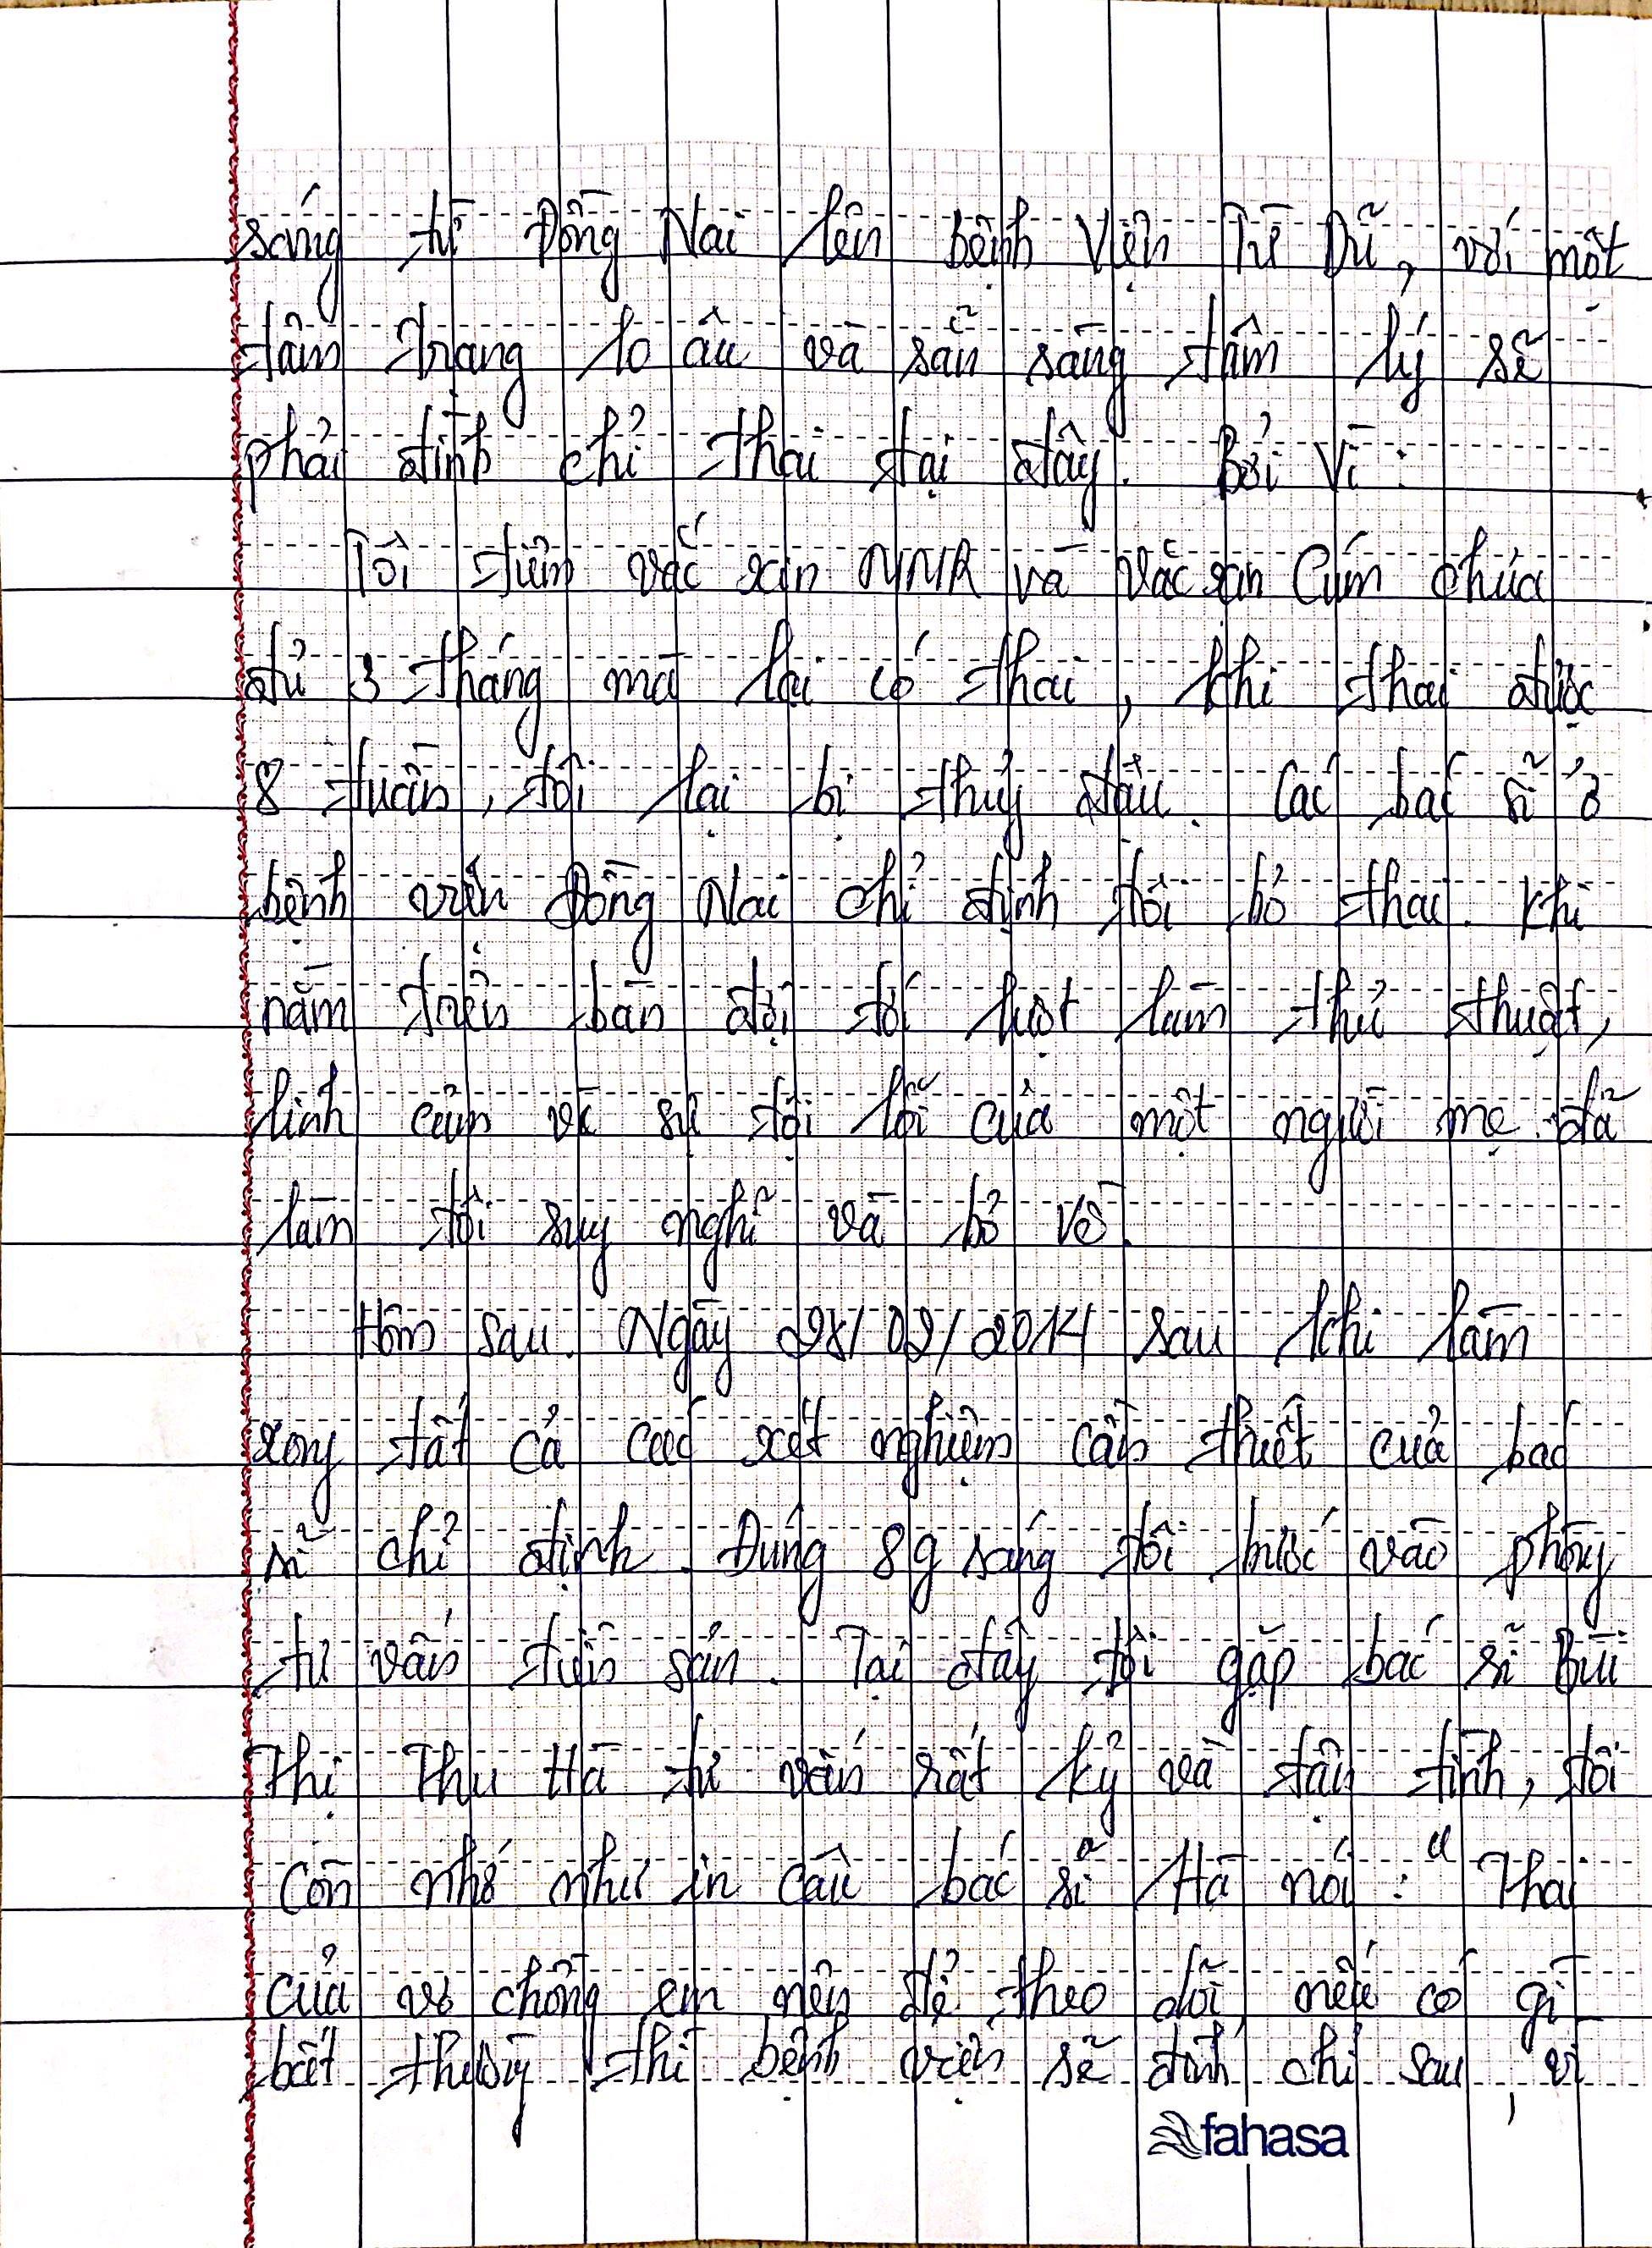 sáng từ Đồng Nai lên Bệnh Viện Từ Dũ, với một
tâm trạng lo âu và sẵn sàng tâm lý sẽ
phải đình chỉ thai tại đây. Bởi Vì :
Tôi tiêm vắc xin MMR và Vắc xin Cúm chưa
đủ 3 tháng mà lại có thai, khi thai được
8 tuần, tôi lại bị thủy đậu. Các bác sĩ ở
bệnh viện Đồng Nai chỉ định tôi bỏ thai. Khi
nằm trên bàn đợi tới lượt làm thủ thuật,
linh cảm về sự tội lỗi của một người mẹ đã
làm tôi suy nghĩ và bỏ về.
Hôm sau. Ngày 28/02/2014 sau khi làm
xong tất cả các xét nghiệm cần thiết của bác
sĩ chỉ định. Đúng 8g sáng tôi bước vào phòng
tư vấn tiền sản. Tại đây tôi gặp bác sĩ Bùi
Thị Thu Hà tư vấn rất kỹ và tận tình, tôi
còn nhớ như in câu bác sĩ Hà nói : " Thai
của vợ chồng em nên để theo dõi, nếu có gì
bất thường thì bệnh viện sẽ đình chỉ sau, vì
fahasa